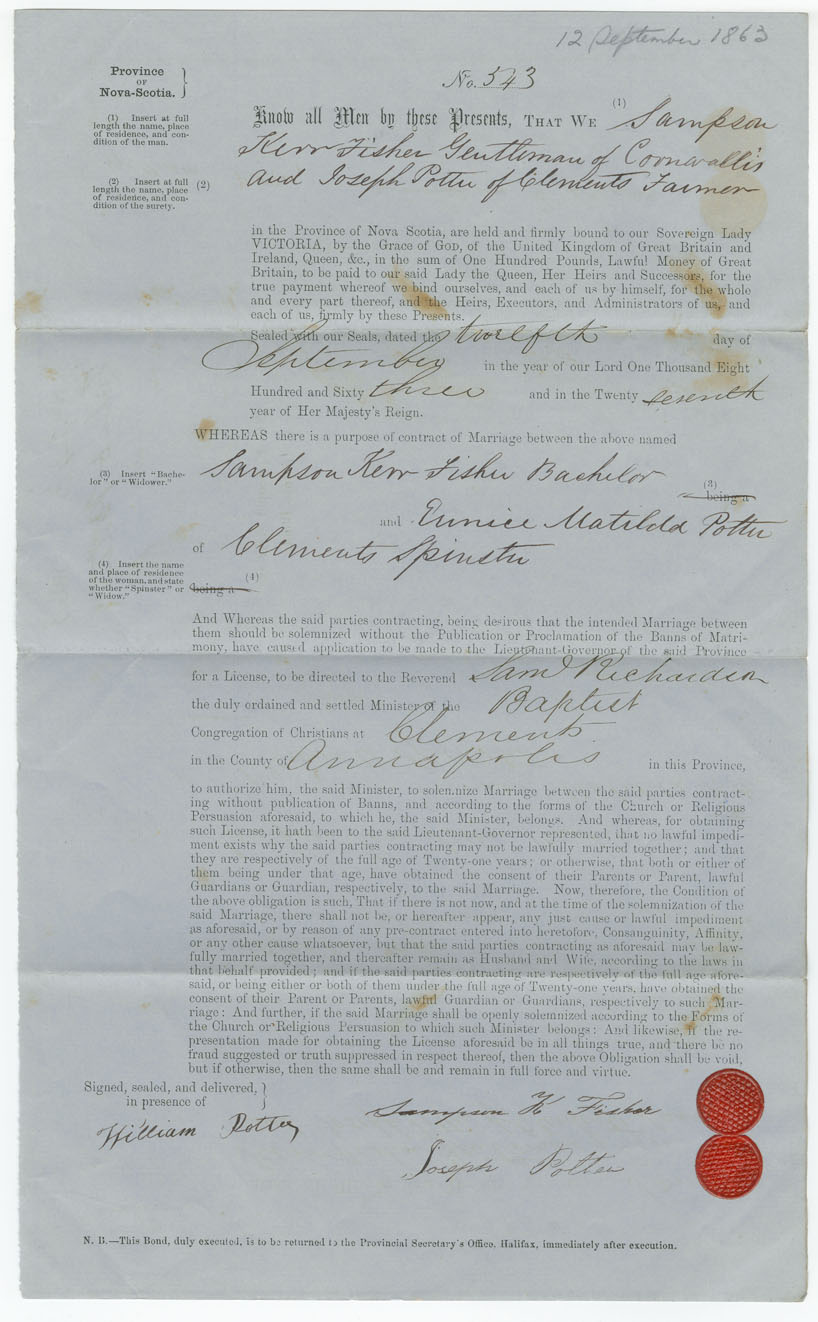 12 September 1863
Province
OF
Nova-Scotia.
No. 543
(1) Insert at full
length the name, place
of residence, and con-
dition of the man.
Know all Men by these Presents, THAT WE (1) Sampson
Kerr Fisher Gentleman of Cornwallis
(2) Insert at full
length the name, place
of residence, and con-
dition of the surety.
(2) and Joseph Potter of Clements Farmer
in the Province of Nova Scotia, are held and firmly bound to our Sovereign Lady
VICTORIA, by the Grace of GOD, of the United Kingdom of Great Britain and
Ireland, Queen, &c., in the sum of One Hundred Pounds, Lawful Money of Great
Britain, to be paid to our said Lady the Queen, Her Heirs and Successors, for the
true payment whereof we bind ourselves, and each of us by himself, for the whole
and every part thereof, and the Heirs, Executors, and Administrators of us, and
each of us, firmly by these Presents.
Sealed with our Seals, dated the twelfth day of
September in the year of our Lord One Thousand Eight
Hundred and Sixty three and in the Twenty seventh
year of Her Majesty's Reign.
WHEREAS there is a purpose of contract of Marriage between the above named
(3) Insert "Bache-
lor" or "Widower."
Sampson Kerr Fisher Bachelor
(3)
being a
and Eunice Matilda Potter
of Clements Spinster
(4) Insert the name
and place of residence
of the woman, and state
whether "Spinster" or
"Widow."
being a (4)
And Whereas the said parties contracting, being desirous that the intended Marriage between
them should be solemnized without the Publication or Proclamation of the Banns of Matri-
mony, have caused application to be made to the Lieutenant-Governor of the said Province
for a License, to be directed to the Reverend Saml Richardson
the duly ordained and settled Minister of the Baptist
Congregation of Christians at Clements
in the County of Annapolis in this Province,
to authorize him, the said Minister, to solemnize Marriage between the said parties contract-
ing without publication of Banns, and according to the forms of the Church or Religious
Persuasion aforesaid, to which he, the said Minister, belongs. And whereas, for obtaining
such License, it hath been to the said Lieutenant-Governor represented, that no lawful impedi-
ment exists why the said parties contracting may not be lawfully married together; and that
they are respectively of the full age of Twenty-one years; or otherwise, that both or either of
them being under that age, have obtained the consent of their Parents or Parent, lawful
Guardians or Guardian, respectively, to the said Marriage. Now, therefore, the Condition of
the above obligation is such, That if there is not now, and at the time of the solemnization of the
said Marriage, there shall not be, or hereafter appear, any just cause or lawful impediment
as aforesaid, or by reason of any pre-contract entered into heretofore, Consanguinity, Affinity,
or any other cause whatsoever, but that the said parties contracting as aforesaid may be law-
fully married together, and thereafter remain as Husband and Wife, according to the laws in
that behalf provided; and if the said parties contracting are respectively of the full age afore-
said, or being either or both of them under the full age of Twenty-one years, have obtained the
consent of their Parent or Parents, lawful Guardian or Guardians, respectively to such Mar-
riage: And further, if the said Marriage shall be openly solemnized according to the Forms of
the Church or Religious Persuasion to which such Minister belongs: And likewise, if the re-
presentation made for obtaining the License aforesaid be in all things true, and there be no
fraud suggested or truth suppressed in respect thereof, then the above Obligation shall be void,
but if otherwise, then the same shall be and remain in full force and virtue.
Signed, sealed, and delivered,
in presence of
Sampson K Fisher
William Potter
Joseph Potter
N. B.—This Bond, duly executed, is to be returned to the Provincial Secretary's Office, Halifax, immediately after execution.